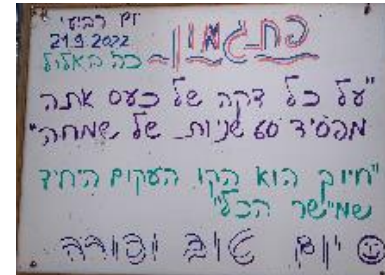 יום רביעי
21.9.2022
כה באלול
פתגמון
"על כל דקה של כעס אתה
מפסיד 60 שניות של שמחה"
"חיוך הוא הקו העקום היחיד
שמיישר הכל"
יום טוב ופורה